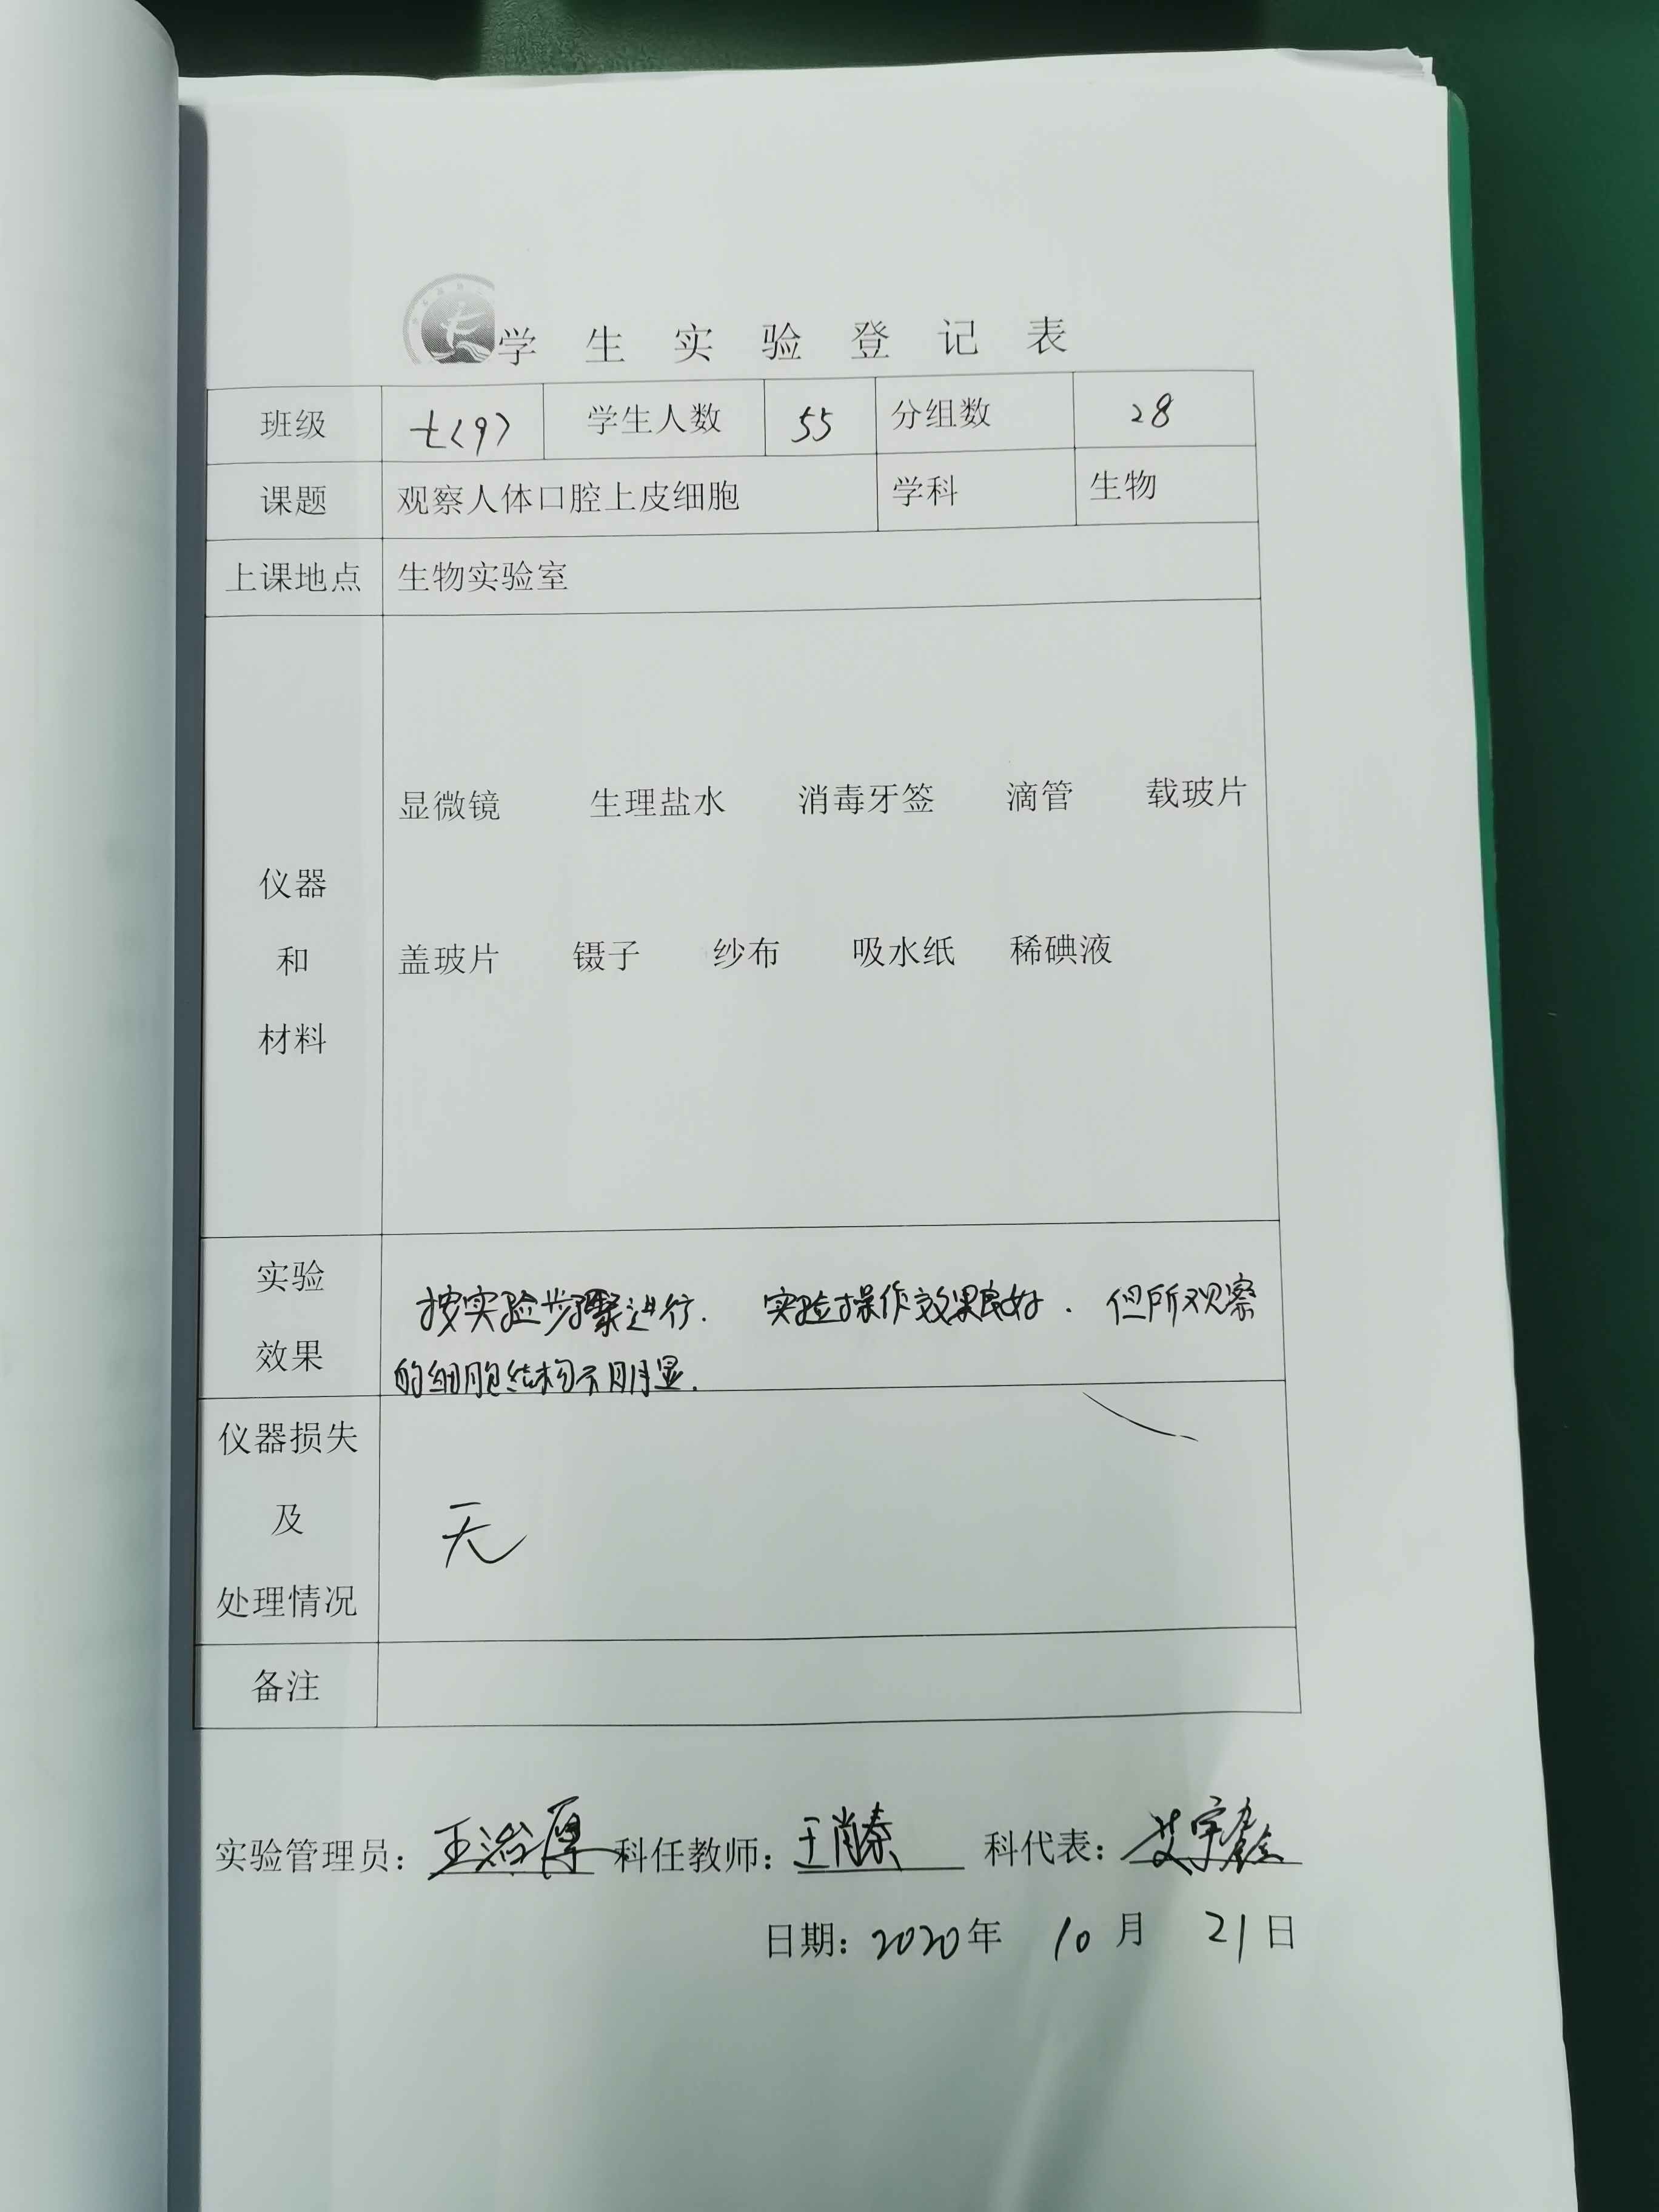 学生实验登记表
班级 七(9) 学生人数 55 分组数 28
课题 观察人体口腔上皮细胞 学科 生物
上课地点 生物实验室
仪器
和
材料
显微镜 生理盐水 消毒牙签 滴管 载玻片
盖玻片 镊子 纱布 吸水纸 稀碘液
实验
效果
按实验步骤进行. 实验操作效果良好. 但所观察
的细胞结构不明显.
仪器损失
及
处理情况
无
备注
实验管理员: 王治厚 科任教师: 王肖秦 科代表: 艾宇鑫
日期: 2020年 10月 21日